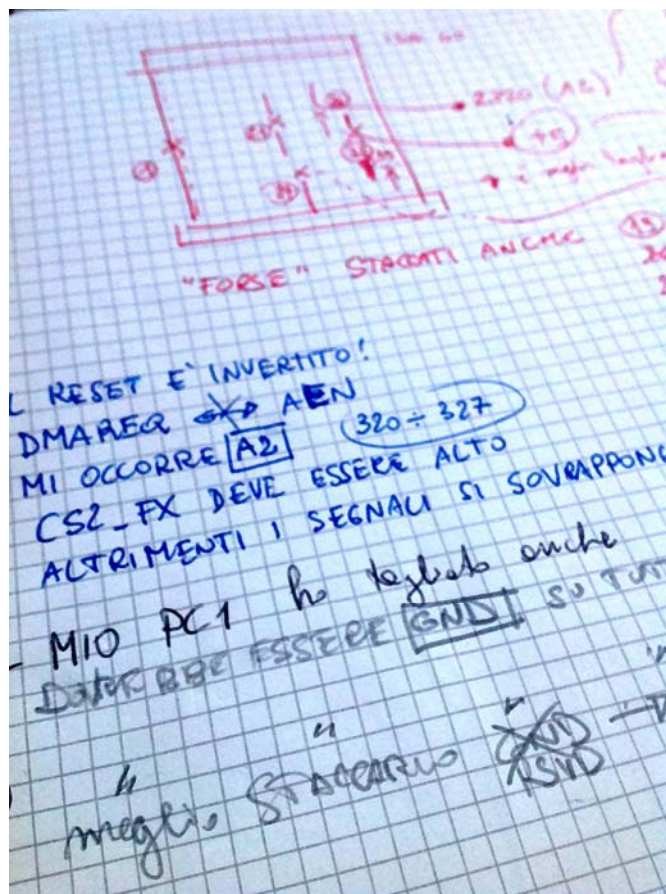 2720 (A2)
+5
"FORSE" STACCATI ANCHE 19
L RESET E' INVERTITO!
DMAREQ AEN
MI OCCORRE A2 320÷327
CS2_FX DEVE ESSERE ALTO
ALTRIMENTI I SEGNALI SI SOVRAPPONG
- MIO PC1 ho tagliato anche
DOVREBBE ESSERE GND SU TUT
" " "
meglio STACCARLO GND
RSVD